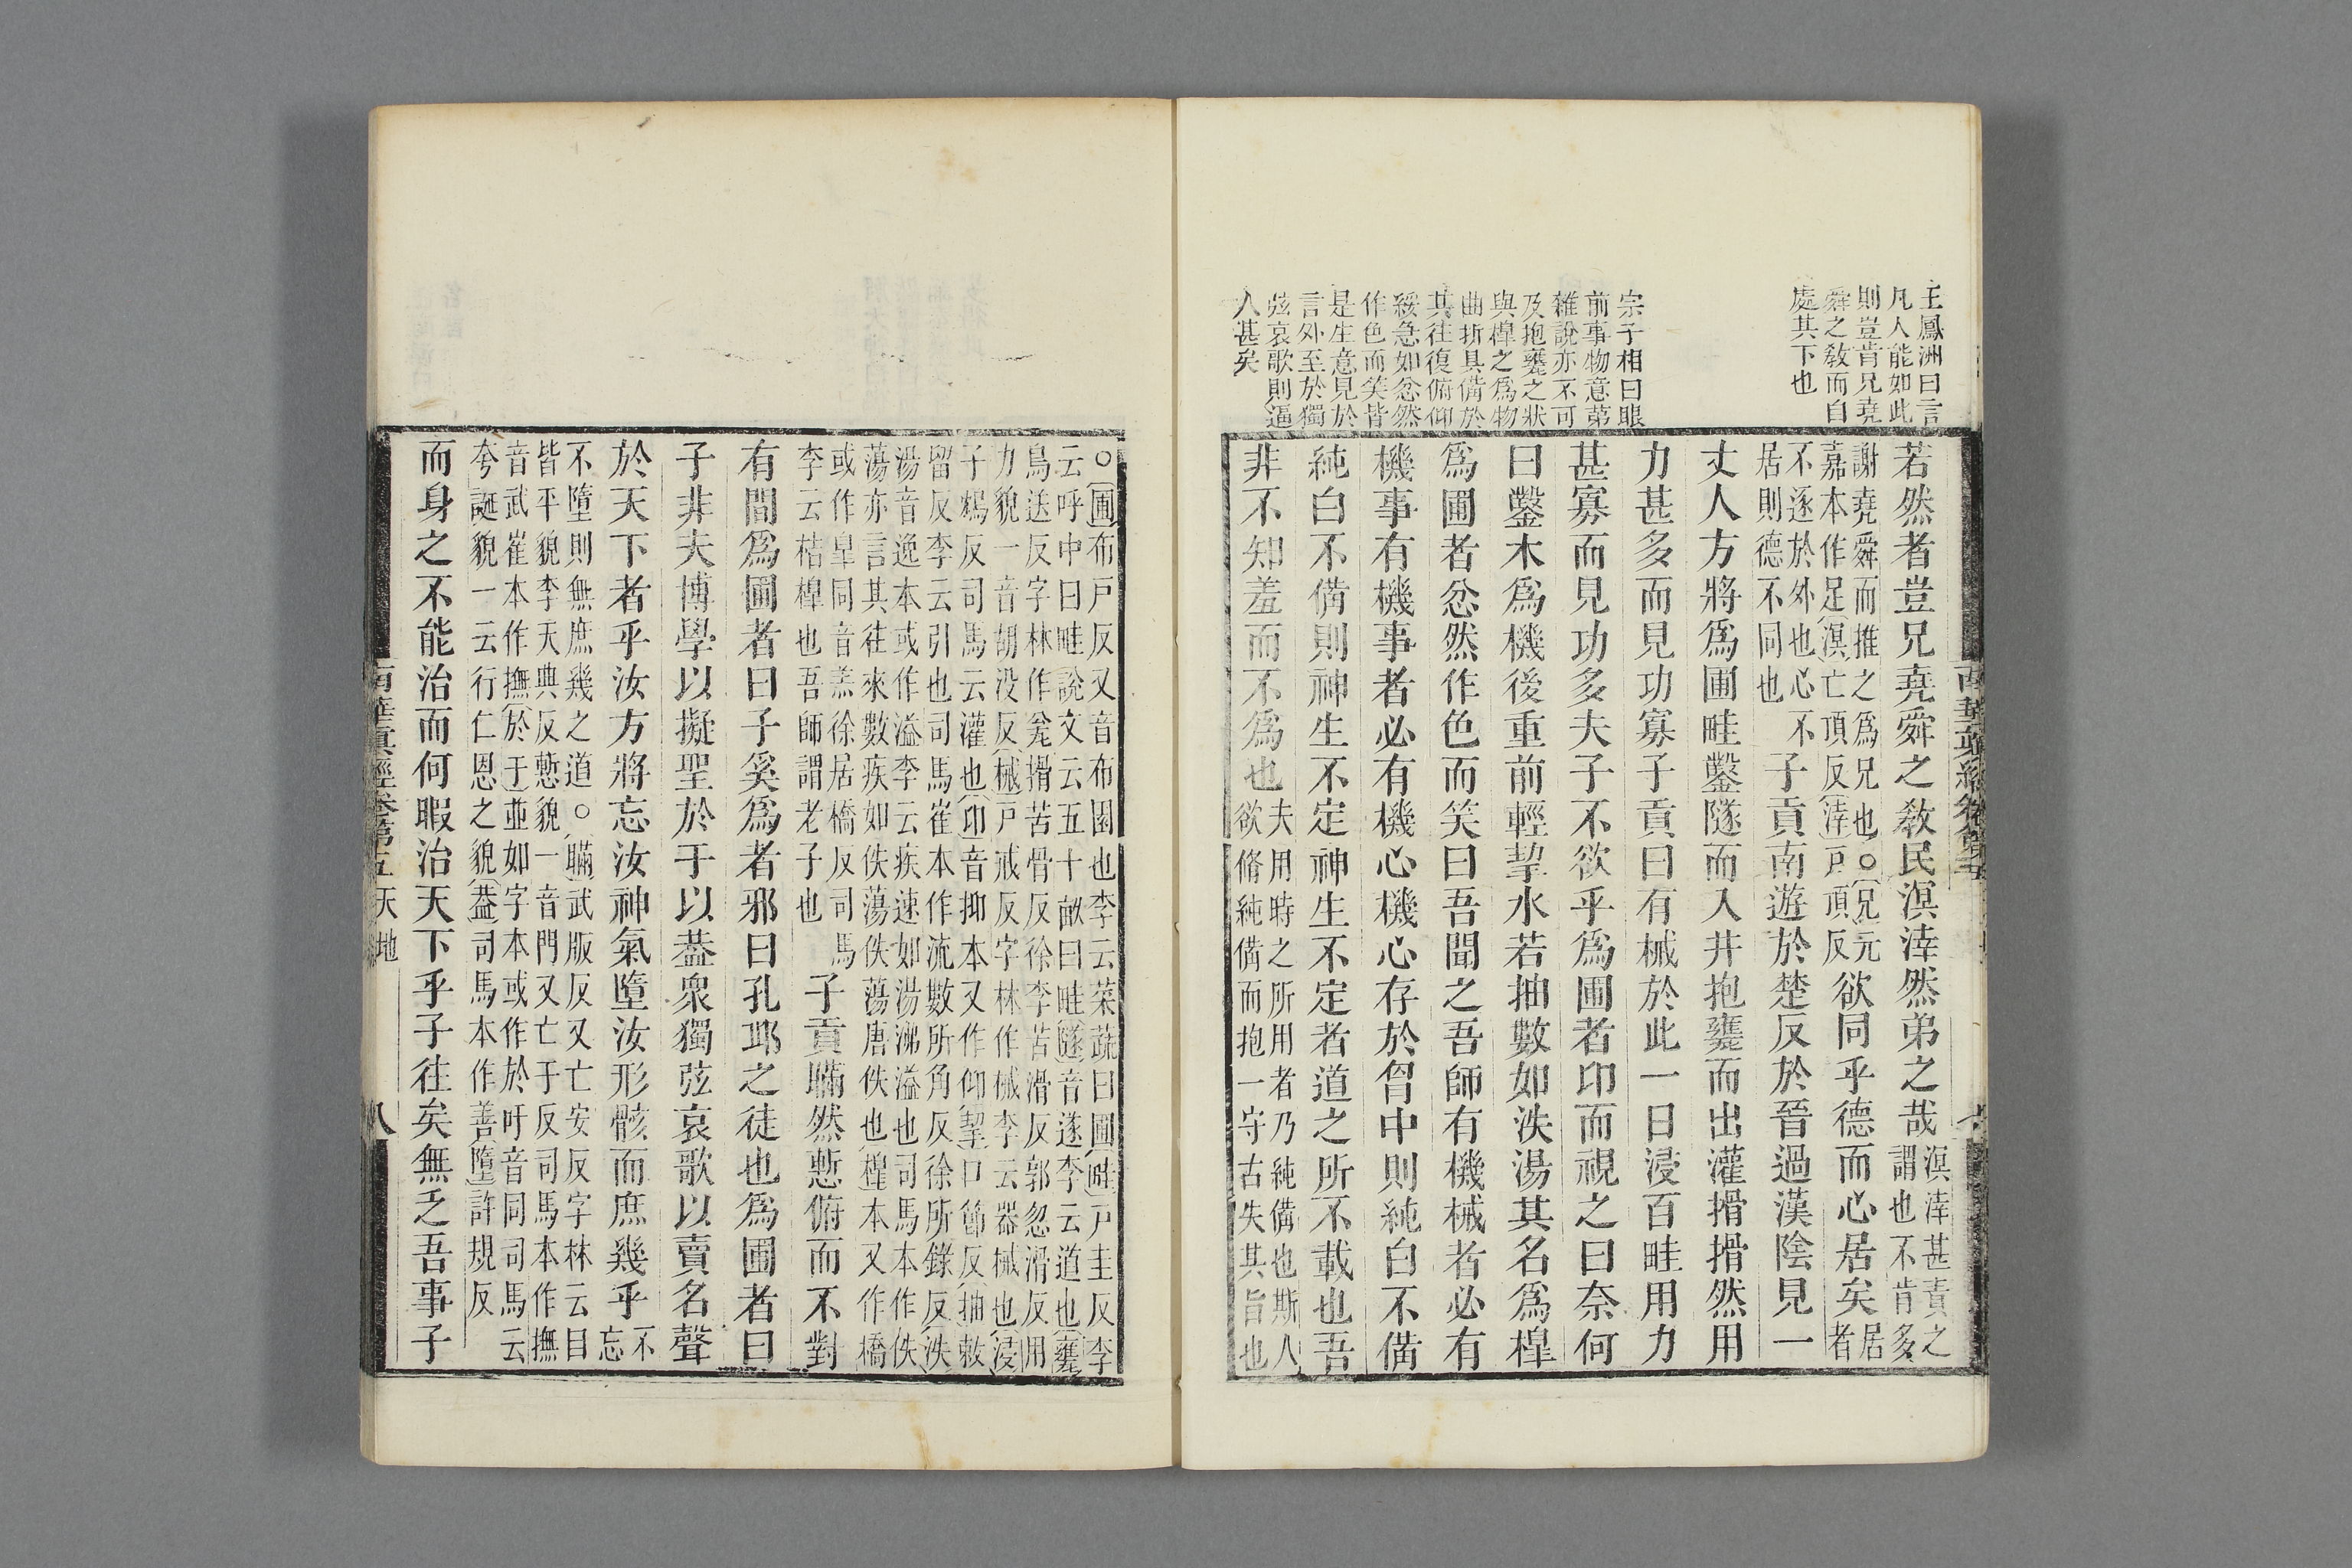 王鳳洲曰言
凡人能如此
則豈肯兄堯
舜之敎而自
處其下也
宗子相曰眼
前事物意第
雜說亦不可
及抱甕之狀
與槹之爲物
曲折具備於
其往復俯仰
緩急如忿然
作色而笑皆
是生意見於
言外至於獨
弦哀歌則逼
人甚矣
若然者豈兄堯舜之敎民溟涬然弟之哉溟涬甚貴之
謂也不肯多
謝堯舜而推之爲兄也○兄元
嘉本作足溟亡頂反涬戸頂反欲同乎德而心居矣居
者
不逐於外也心不
居則德不同也子貢南遊於楚反於晉過漢陰見一
丈人方將爲圃畦鑿隧而入井抱甕而出灌搰搰然用
力甚多而見功寡子貢曰有械於此一日浸百畦用力
甚寡而見功多夫子不欲乎爲圃者卬而視之曰奈何
曰鑿木爲機後重前輕挈水若抽數如泆湯其名爲槹
爲圃者忿然作色而笑曰吾聞之吾師有機械者必有
機事有機事者必有機心機心存於胷中則純白不備
純白不備則神生不定神生不定者道之所不載也吾
非不知羞而不爲也夫用時之所用者乃純備也斯人
欲脩純備而抱一守古失其旨也
○圃布戸反又音布園也李云菜蔬曰圃畦戸圭反李
云呼中曰畦說文云五十畝曰畦隧音遂李云道也甕
烏送反字林作瓮搰苦骨反徐李苦滑反郭忽滑反用
力貌一音胡没反械戸戒反字林作械李云器械也浸
子鴆反司馬云灌也卬音抑本又作仰挈口節反抽敕
留反李云引也司馬崔本作流數所角反徐所錄反泆
湯音逸本或作溢李云疾速如湯沸溢也司馬本作佚
蕩亦言其往來數疾如佚蕩佚蕩唐佚也槹本又作橋
或作皐同音羔徐居橋反司馬
李云桔槹也吾師謂老子也子貢瞞然慙俯而不對
有間爲圃者曰子奚爲者邪曰孔丘之徒也爲圃者曰
子非夫博學以擬聖於于以葢衆獨弦哀歌以賣名聲
於天下者乎汝方將忘汝神氣墮汝形骸而庶幾乎不
忘
不墮則無庶幾之道○瞞武版反又亡安反字林云目
皆平貌李天典反慙貌一音門又亡于反司馬本作撫
音武崔本作撫於于並如字本或作於吁音同司馬云
夸誕貌一云行仁恩之貌葢司馬本作善墮許規反
而身之不能治而何暇治天下乎子往矣無乏吾事子
南華眞經卷第五 天地 八